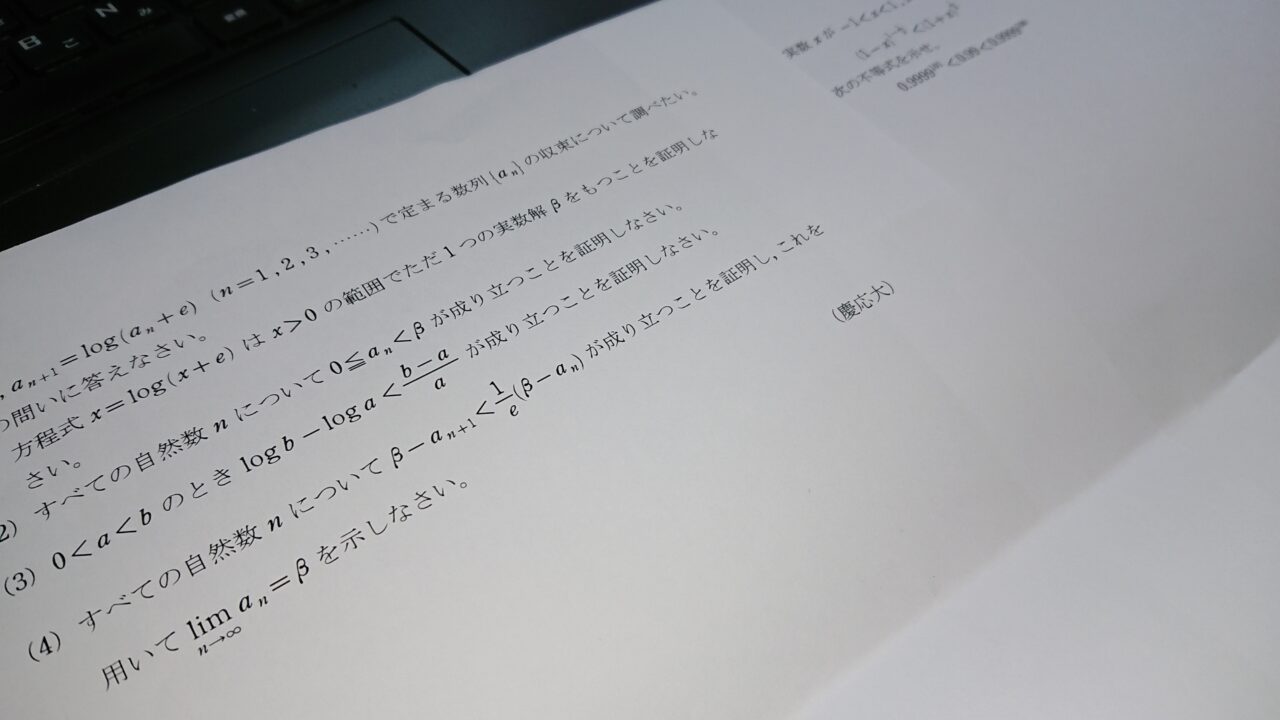 N
み
日
こ
, a_{n+1}=log(a_n+e) (n=1,2,3,……)で定まる数列{a_n}の収束について調べたい。
問いに答えなさい。
方程式 x=log(x+e) は x>0 の範囲でただ1つの実数解 β をもつことを証明しな
さい。
2) すべての自然数 n について 0≦a_n<β が成り立つことを証明しなさい。
(3) 0<a<b のとき log b−log a<\frac{b−a}{a} が成り立つことを証明しなさい。
(4) すべての自然数 n について β−a_{n+1}<\frac{1}{e}(β−a_n) が成り立つことを証明し,これを
用いて \lim_{n→∞} a_n=β を示しなさい。
(慶応大)
実数 x が −1<x<1,
次の不等式を示せ。